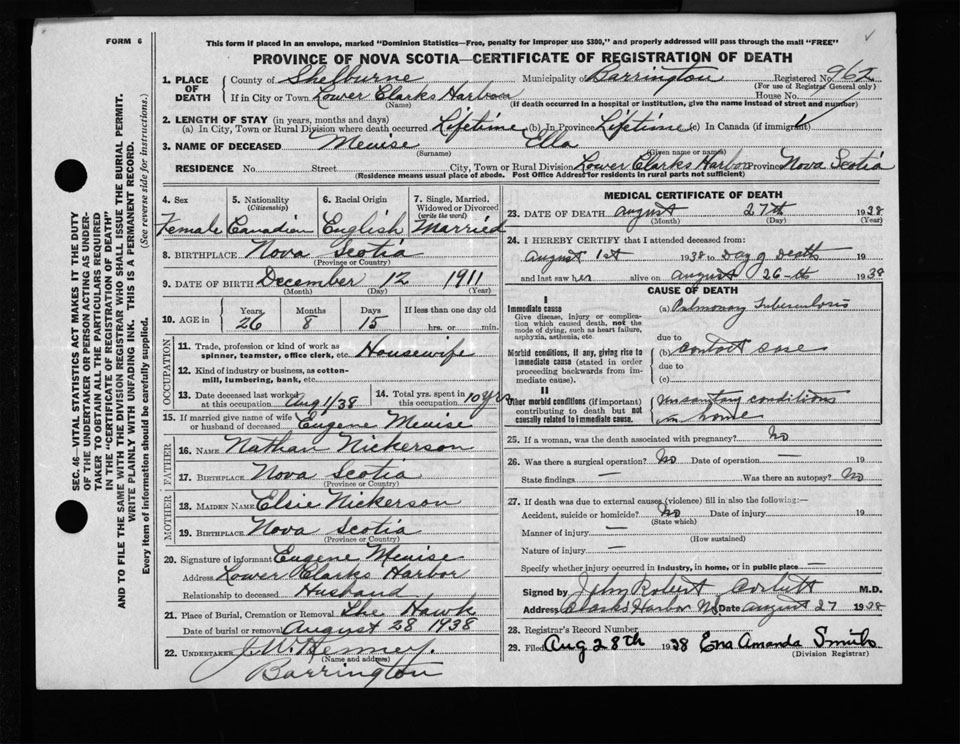 FORM 6
This form if placed in an envelope, marked "Dominion Statistics—Free, penalty for improper use $300," and properly addressed will pass through the mail "FREE"
PROVINCE OF NOVA SCOTIA—CERTIFICATE OF REGISTRATION OF DEATH
1. PLACE OF DEATH County of Shelburne Municipality of Barrington Registered No. 962
(For use of Registrar General only)
If in City or Town Lower Clarks Harbor House No.
(Name) (If death occurred in a hospital or institution, give the name instead of street and number)
2. LENGTH OF STAY (in years, months and days)
(a) In City, Town or Rural Division where death occurred Lifetime (b) In Province Lifetime (c) In Canada (if immigrant)
3. NAME OF DECEASED Meuise Ella
(Surname) (Given name or names)
RESIDENCE No. Street City, Town or Rural Division Lower Clarks Harbor Province Nova Scotia
(Residence means usual place of abode. Post Office Address for residents in rural parts not sufficient)
4. Sex 5. Nationality 6. Racial Origin 7. Single, Married, Widowed or Divorced
(Citizenship) (write the word)
Female Canadian English Married
8. BIRTHPLACE Nova Scotia
(Province or Country)
9. DATE OF BIRTH December 12 1911
(Month) (Day) (Year)
10. AGE in Years Months Days If less than one day old
26 8 15 hrs. or min.
OCCUPATION
11. Trade, profession or kind of work as spinner, teamster, office clerk, etc. Housewife
12. Kind of industry or business, as cotton-mill, lumbering, bank, etc.
13. Date deceased last worked at this occupation Aug 1/38 14. Total yrs. spent in this occupation 10 yrs
15. If married give name of wife or husband of deceased Eugene Meuise
FATHER
16. NAME Nathan Nickerson
17. BIRTHPLACE Nova Scotia
(Province or Country)
MOTHER
18. MAIDEN NAME Elsie Nickerson
19. BIRTHPLACE Nova Scotia
(Province or Country)
20. Signature of informant Eugene Meuise
Address Lower Clarks Harbor
Relationship to deceased Husband
21. Place of Burial, Cremation or Removal The Hawk
Date of burial or removal August 28 1938
22. UNDERTAKER J. W. Kenney.
(Name and address)
Barrington
MEDICAL CERTIFICATE OF DEATH
23. DATE OF DEATH August 27th 1938
(Month) (Day) (Year)
24. I HEREBY CERTIFY that I attended deceased from:
August 1st 1938 to Day of Death 19
and last saw her alive on August 26-th 1938
CAUSE OF DEATH
I
Immediate cause (a) Pulmonary Tuberculosis
Give disease, injury or complication which caused death, not the mode of dying, such as heart failure, asphyxia, asthenia, etc.
due to
Morbid conditions, if any, giving rise to immediate cause (stated in order proceeding backwards from immediate cause).
(b) contact case
due to
(c)
II
Other morbid conditions (if important) contributing to death but not causally related to immediate cause.
Unsanitary conditions
in home
25. If a woman, was the death associated with pregnancy? No
26. Was there a surgical operation? No Date of operation — 19
State findings — Was there an autopsy? No
27. If death was due to external causes (violence) fill in also the following:—
Accident, suicide or homicide? No Date of injury 19
(State which)
Manner of injury —
(How sustained)
Nature of injury —
Specify whether injury occurred in industry, in home, or in public place —
Signed by John Robert Corbett M.D.
Address Clarks Harbor NS Date August 27 1938
28. Registrar's Record Number
29. Filed Aug 28th 1938 Ena Amanda Smith
(Division Registrar)
SEC. 46—VITAL STATISTICS ACT MAKES IT THE DUTY
OF THE UNDERTAKER OR PERSON ACTING AS UNDER-
TAKER TO OBTAIN ALL THE PARTICULARS REQUIRED
IN THE "CERTIFICATE OF REGISTRATION OF DEATH"
AND TO FILE THE SAME WITH THE DIVISION REGISTRAR WHO SHALL ISSUE THE BURIAL PERMIT.
WRITE PLAINLY WITH UNFADING INK. THIS IS A PERMANENT RECORD.
Every item of information should be carefully supplied. (See reverse side for instructions.)